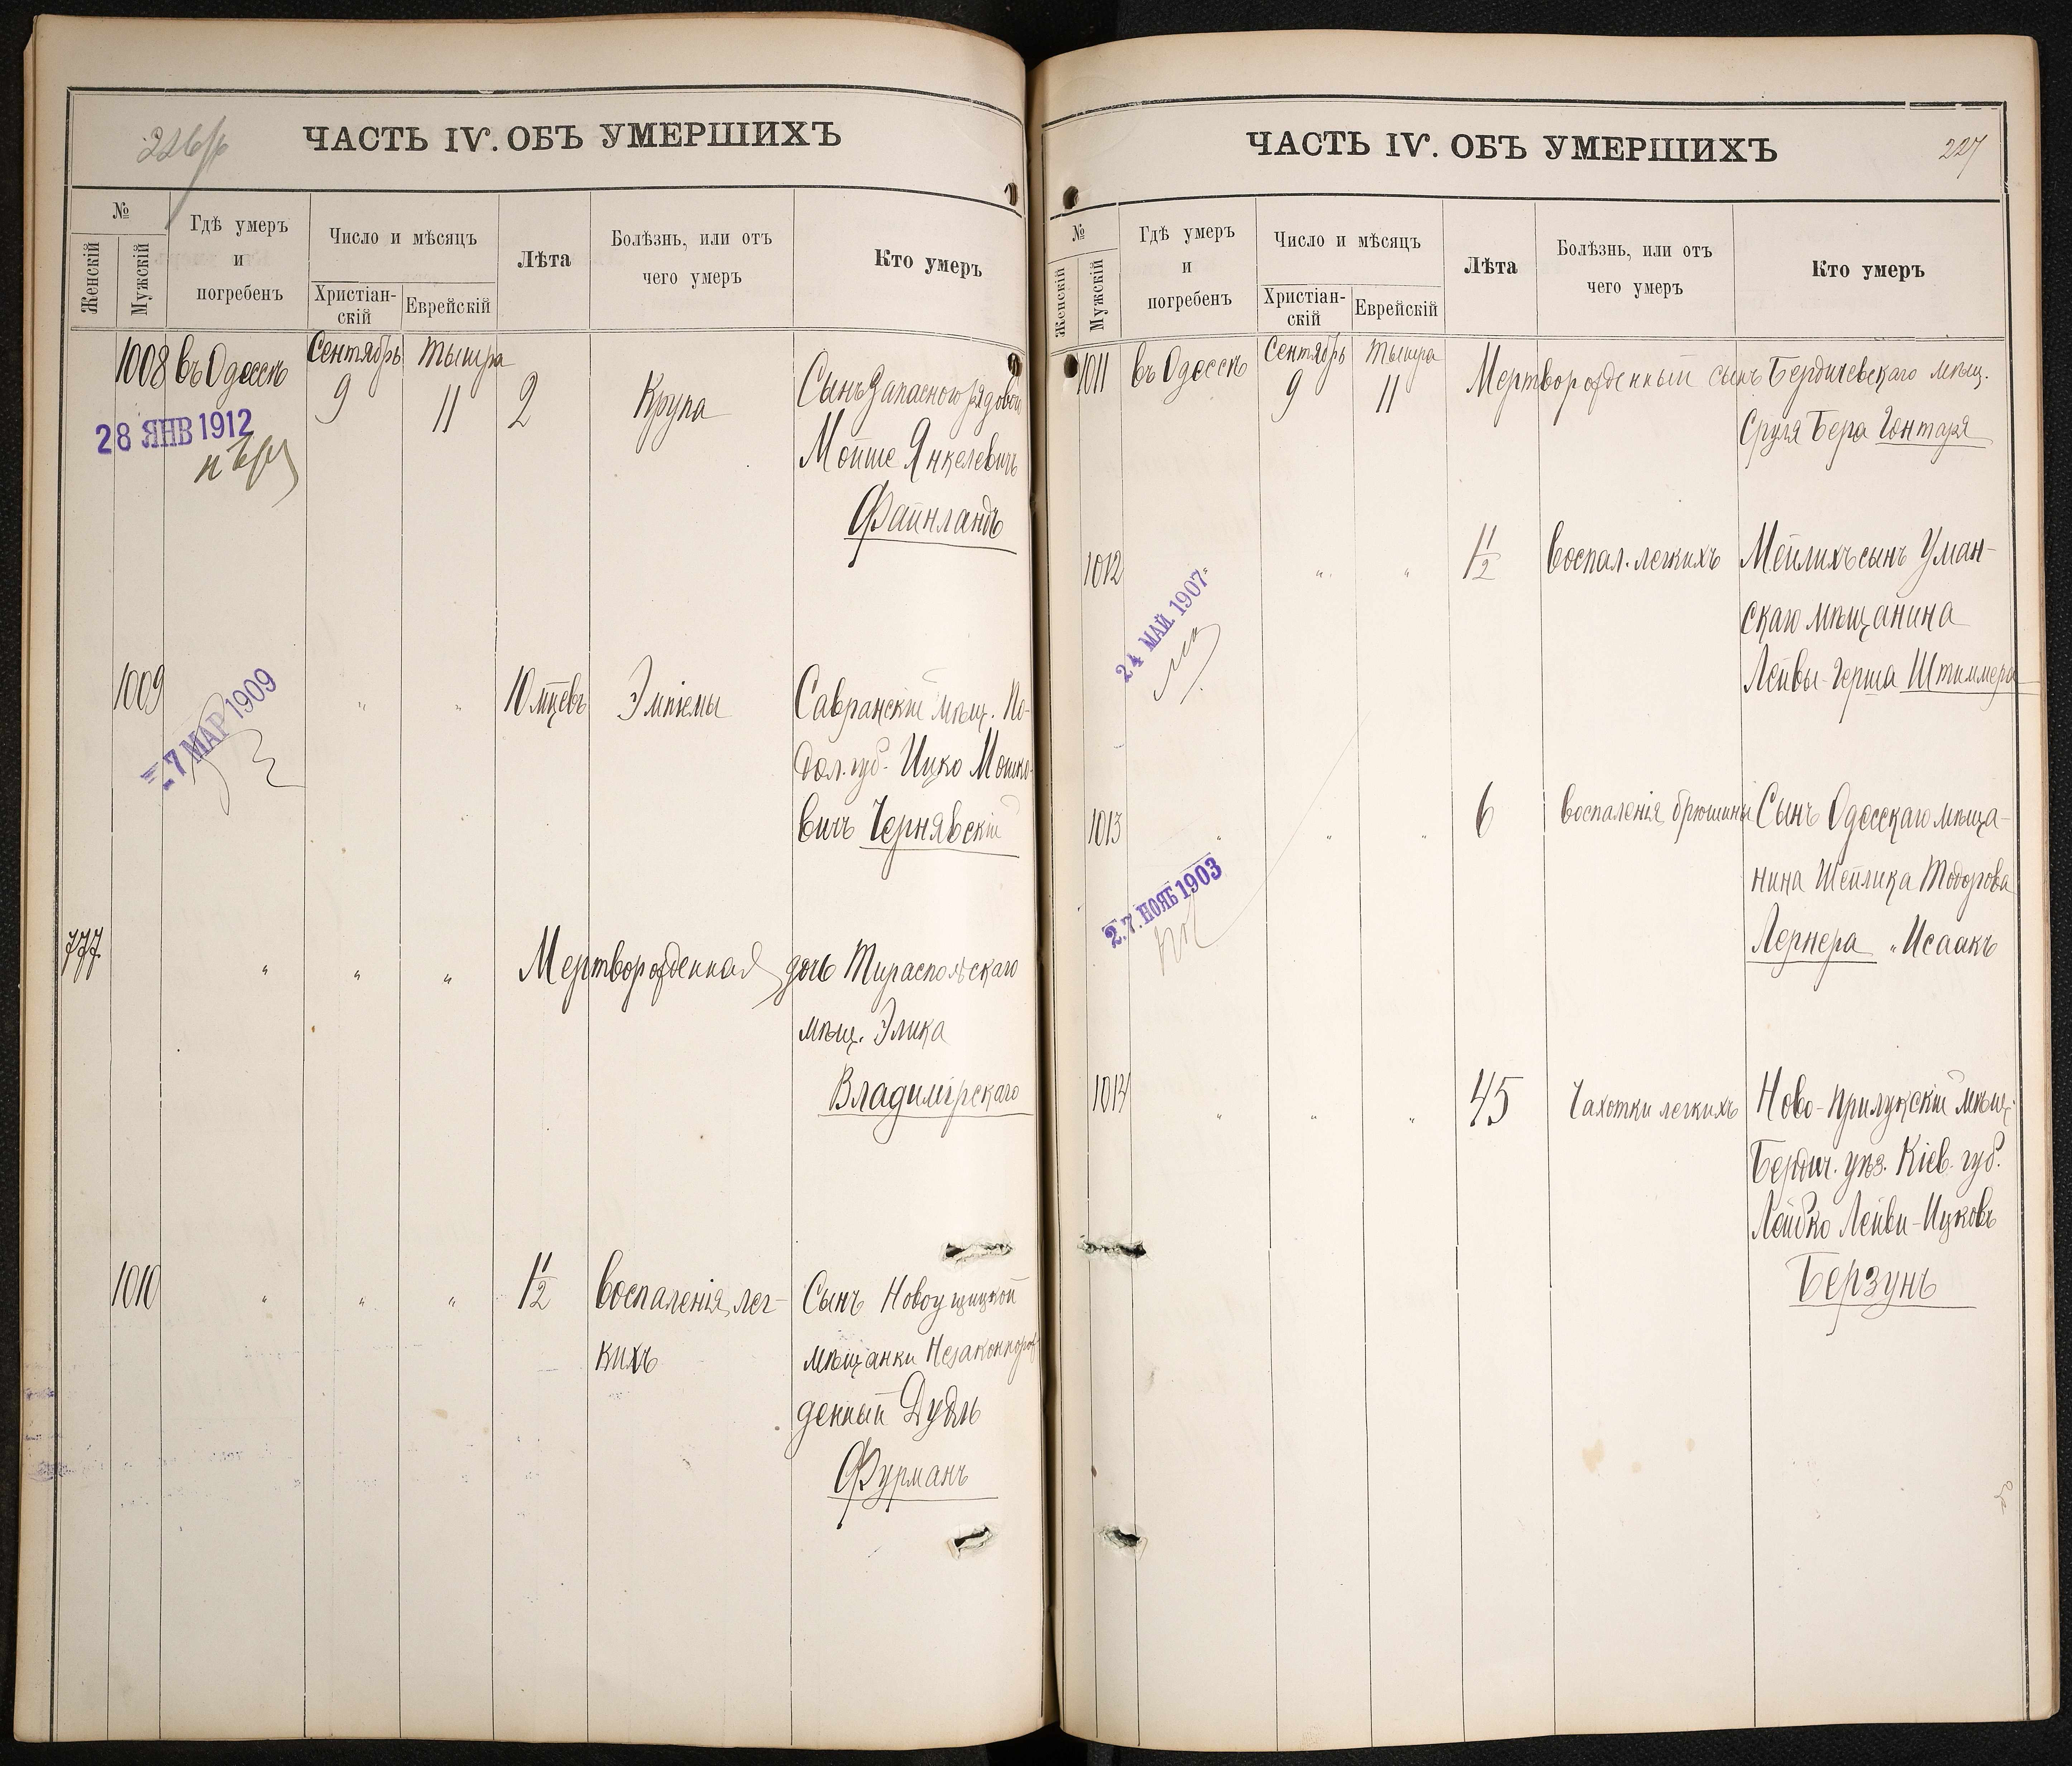 226/б
ЧАСТЬ IV. ОБЪ УМЕРШИХЪ
№
Женскій
Мужскій
Гдѣ умеръ
и
погребенъ
Число и мѣсяцъ
Христіан-
скій
Еврейскій
Лѣта
Болѣзнь, или отъ
чего умеръ
Кто умеръ
1008 въ Одессѣ Сентябрь 9 Тышра 11 2 Крупа Сынъ Запасного рядового
28 ЯНВ 1912
Мойше Янкелевичъ
Файнландъ
1009 " " 10 мцевъ Эмпіемы Савранскій мѣщ. По-
-7 МАР 1909
дол. губ. Ицко Мошко-
вичъ Чернявскій
777 " " " Мертворожденная дочь Тираспольскаго
мѣщ. Элика
Владимірскаго
1010 " " " 1½ Воспаленія лег- Сынъ Новоушицкой
кихъ мѣщанки Незаконнорож-
денный Дудль
Фурманъ
227
ЧАСТЬ IV. ОБЪ УМЕРШИХЪ
№
Женскій
Мужскій
Гдѣ умеръ
и
погребенъ
Число и мѣсяцъ
Христіан-
скій
Еврейскій
Лѣта
Болѣзнь, или отъ
чего умеръ
Кто умеръ
1011 въ Одессѣ Сентябрь 9 Тышра 11 Мертворожденный сынъ Бердичевскаго мѣщ.
Сруля Бера Гонтаря
1012 " " 1½ Воспал. легкихъ Мейлихъ сынъ Уман-
24 МАЙ 1907
скаго мѣщанина
Лейвы-Герша Штиммера
1013 " " " 6 Воспаленія брюшины Сынъ Одесскаго мѣща-
27 НОЯБ 1903
нина Шейлика Тодорова
Лернера "Исаакъ
1014 " " " 45 Чахотки легкихъ Ново-Прилукскій мѣщ.
Бердич. уѣз. Кіев. губ.
Лейбко Лейви-Ицковъ
Берзунъ